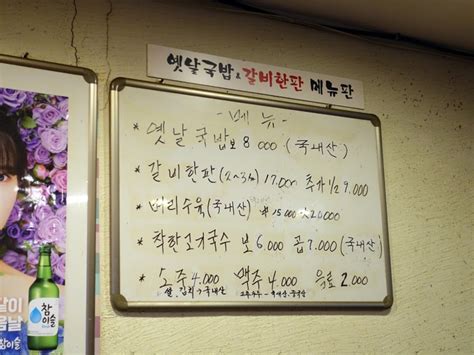 옛날국밥 & 갈비한판 메뉴판
- 메뉴 -
* 옛날국밥 보 8000 (국내산)
* 갈비한판 (2~3人) 17.000 추가 1/2 9.000
* 머리수육 (국내산) 中 15.000 大 20.000
* 착한고기국수 보 6.000 곱 7.000 (국내산)
* 소주 4.000 맥주 4.000 음료 2.000
쌀, 김치 → 국내산
참이슬